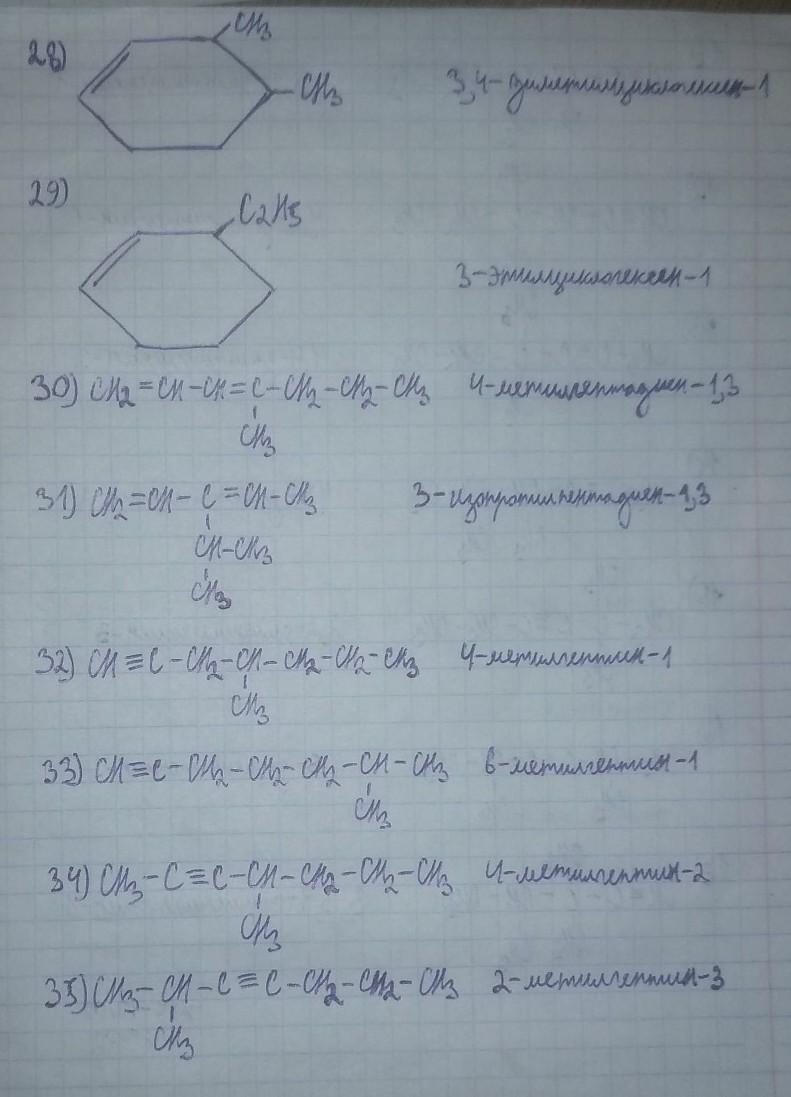 28) CH3
CH3 3,4-диметилциклогексен-1
29) C2H5
3-этилциклогексен-1
30) CH2=CH-CH=C-CH2-CH2-CH3 4-метилгептадиен-1,3
CH3
31) CH2=CH-C=CH-CH3 3-изопропилпентадиен-1,3
CH-CH3
CH3
32) CH≡C-CH2-CH-CH2-CH2-CH3 4-метилгептин-1
CH3
33) CH≡C-CH2-CH2-CH2-CH-CH3 6-метилгептин-1
CH3
34) CH3-C≡C-CH-CH2-CH2-CH3 4-метилгептин-2
CH3
35) CH3-CH-C≡C-CH2-CH2-CH3 2-метилгептин-3
CH3